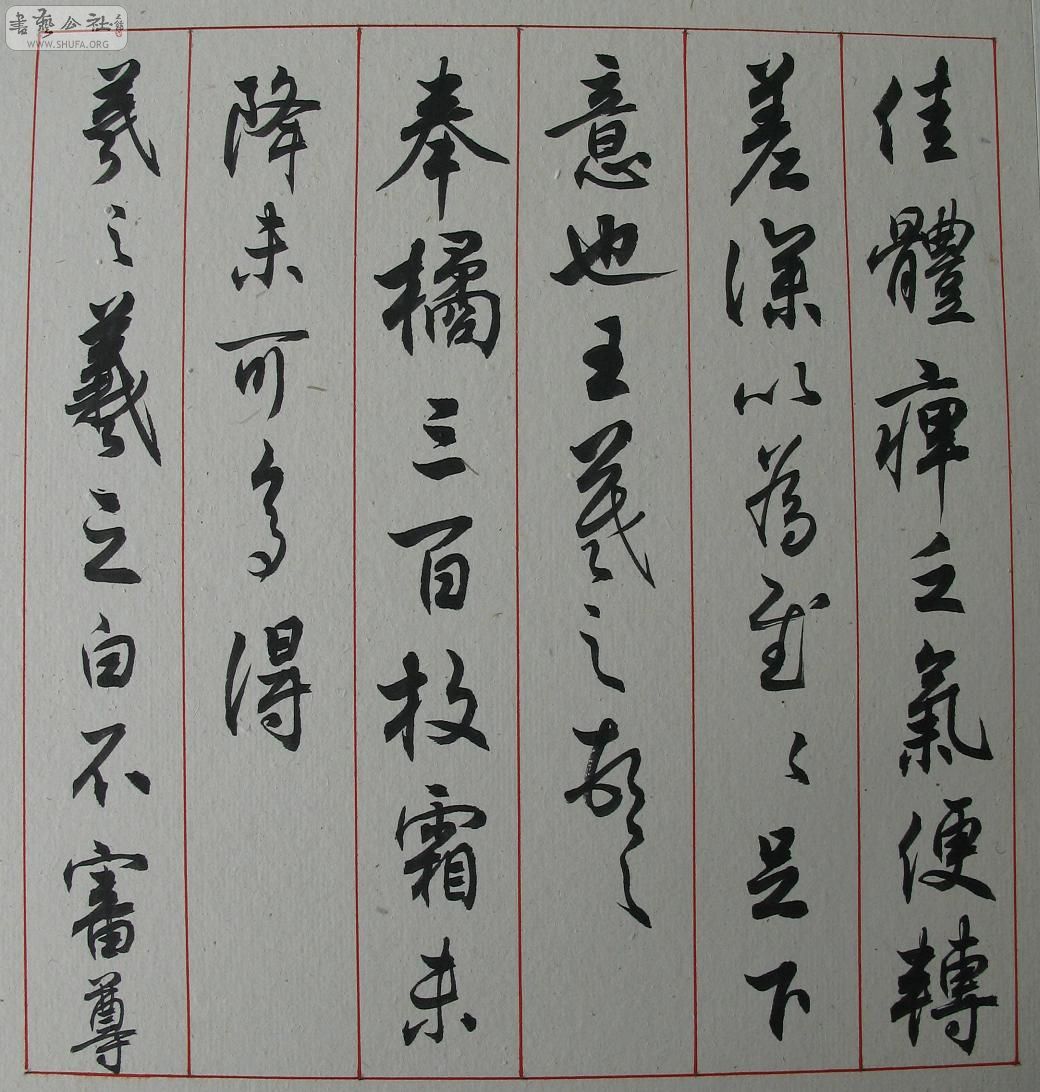 書藝公社
WWW.SHUFA.ORG
佳體痺乏氣便轉
差深以為慰〻足下
意也王羲之
奉橘三百枚霜未
降未可多得
羲之羲之白不審尊